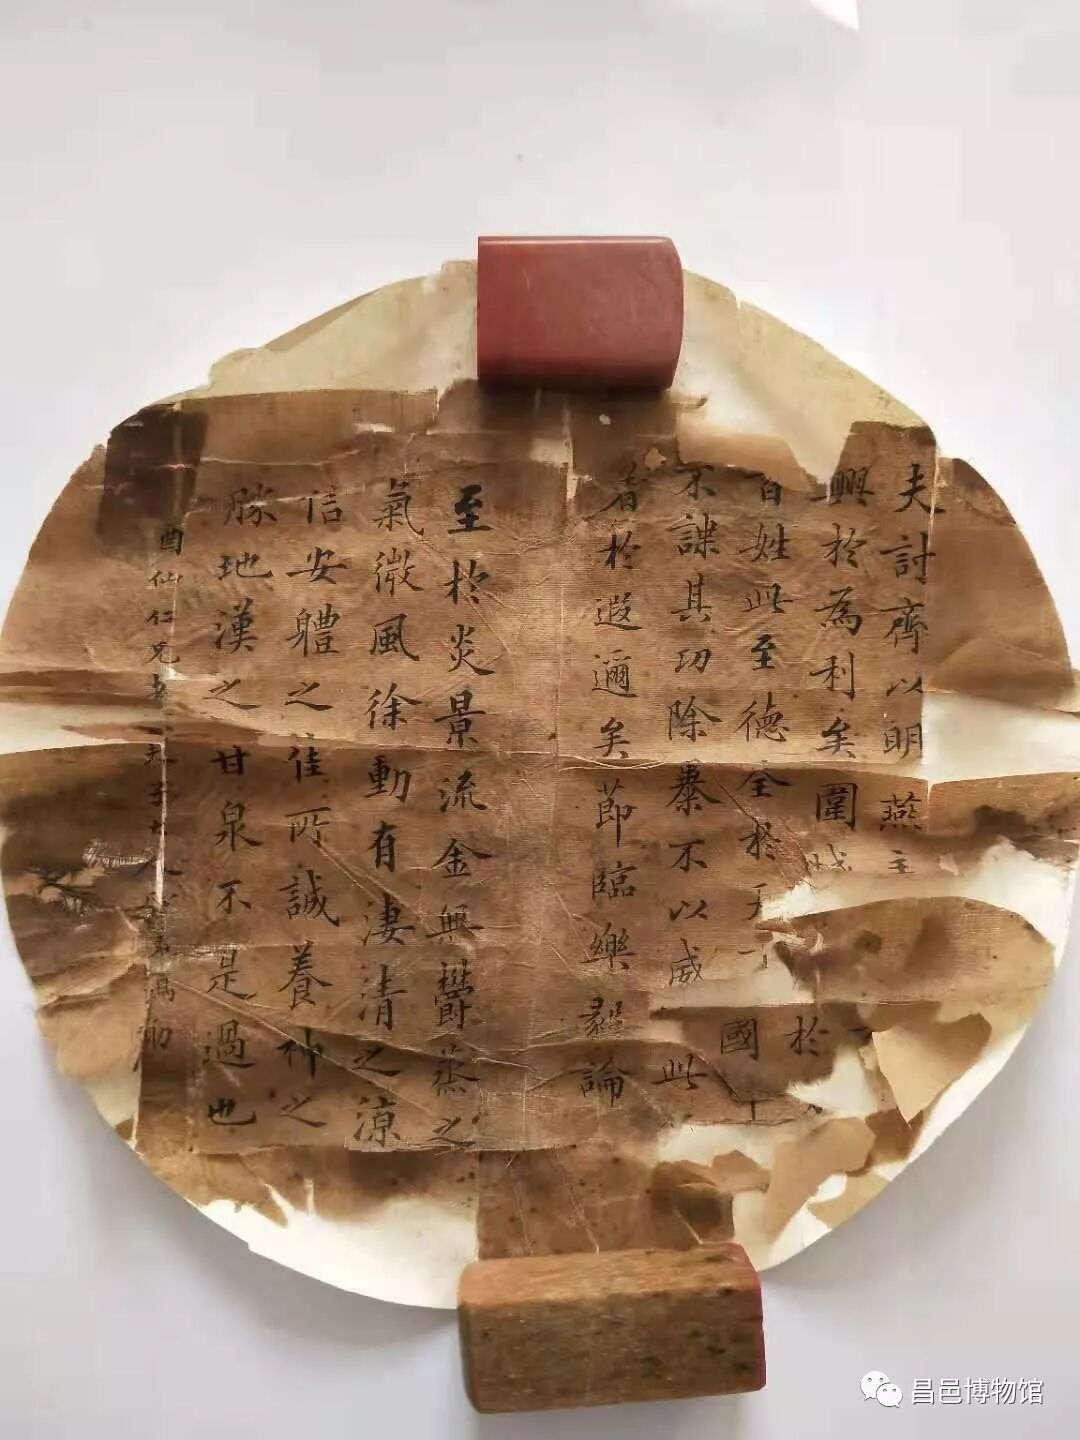 夫討齊以明燕主
興於為利矣圍城
於
百姓此至德全於天下
國
不謀其功除暴不以威
此
著於遐邇矣節臨樂毅論
至於炎景流金無鬱蒸之
氣微風徐動有淒清之涼
信安體之佳所誠養神之
勝地漢之甘泉不是過也
酉仙仁兄
昌邑博物馆